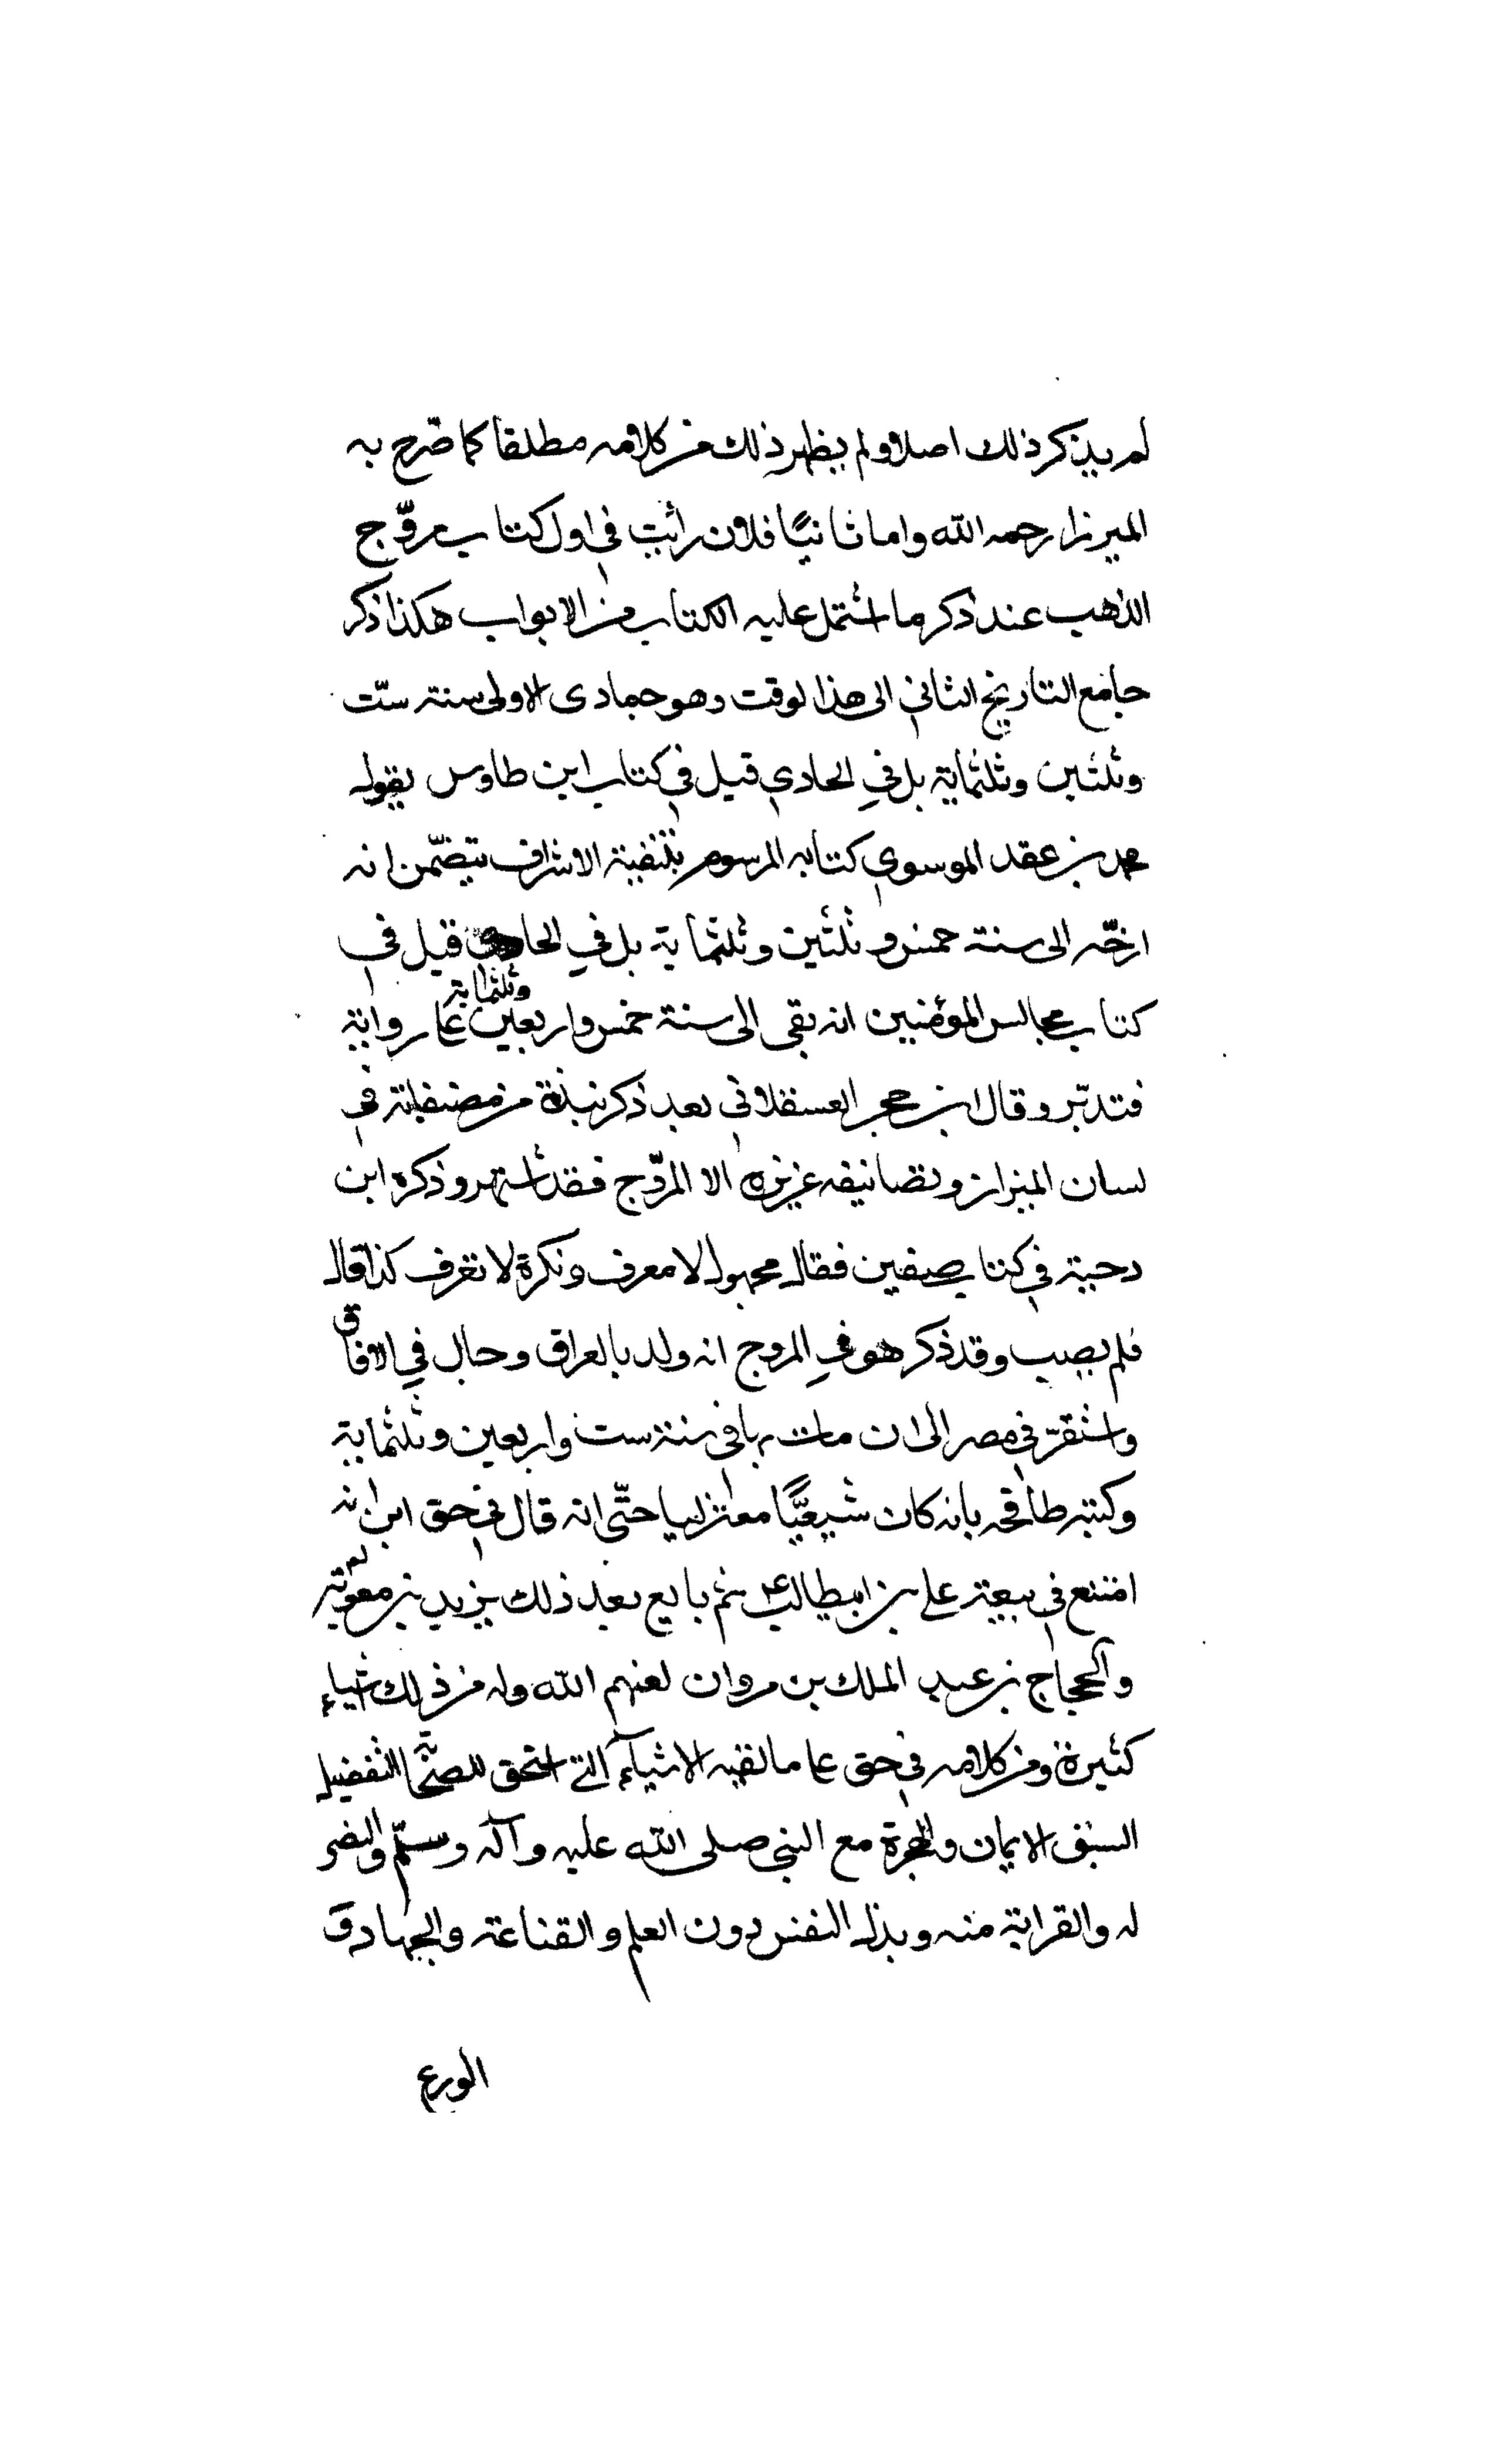 لم يذكر ذلك اصلا ولم يظهر ذلك من كلامه مطلقا كما صّرح به
الميرزا رحمه الله واما ثانيًا فلان رأيت في اول كتاب مروّج
الذهب عند ذكر ما اشتمل عليه الكتاب من الابواب هكذا ذكر
جامع التاريخ الثاني الى هذا لوقت وهو جمادى الاولى سنة ستّ
وثلثين وثلثماية بل في الحادي قيل في كتاب ابن طاوس يقوله
محمد بن عقد الموسوي كتابه المرسوم يتضّمن انه
ارخّه الى سنة خمس وثلثين وثلثماية بل في الحادي قيل في
كتاب مجالس المؤمنين انه بقى الى سنة خمس واربعين وثلثماية على رواية
فتدبّر وقال ابن حجر العسقلاني بعد ذكر نبذة من مصنفاته في
لسان الميزان وتصانيفه عزيزه الا المرّوج فقد اشتهر وذكره ابن
دحية في كتاب صفين فقال مجهول لا معرف ونكرة لا تعرف كذا قال
فلم يصيب وقد ذكر هو في المروج انه ولد بالعراق وجال في الافاق
واستقرّ في مصر الى ان مات بها في سنة ست واربعين وثلثماية
وكتبه طافحه بانه كان شيعيًّا معتزليا حتّى انه قال في حق ابن انه
امتنع في بيعة على بن ابيطالب ع ثم بايع بعد ذلك يزيد بن معوية
والحجاج بن عبد الملك بن مروان لعنهم الله وله من ذلك اشياء
كثيرة ومن كلامه في حق على ما لفيه الاشياء التي استحق الصحابة التفضيل
السبق الايمان والهجرة مع النبي صلى الله عليه وآله وسلّم والنصر
له والقرابة منه وبذل النفس دون العلم والقناعة والجهاد و
الورع